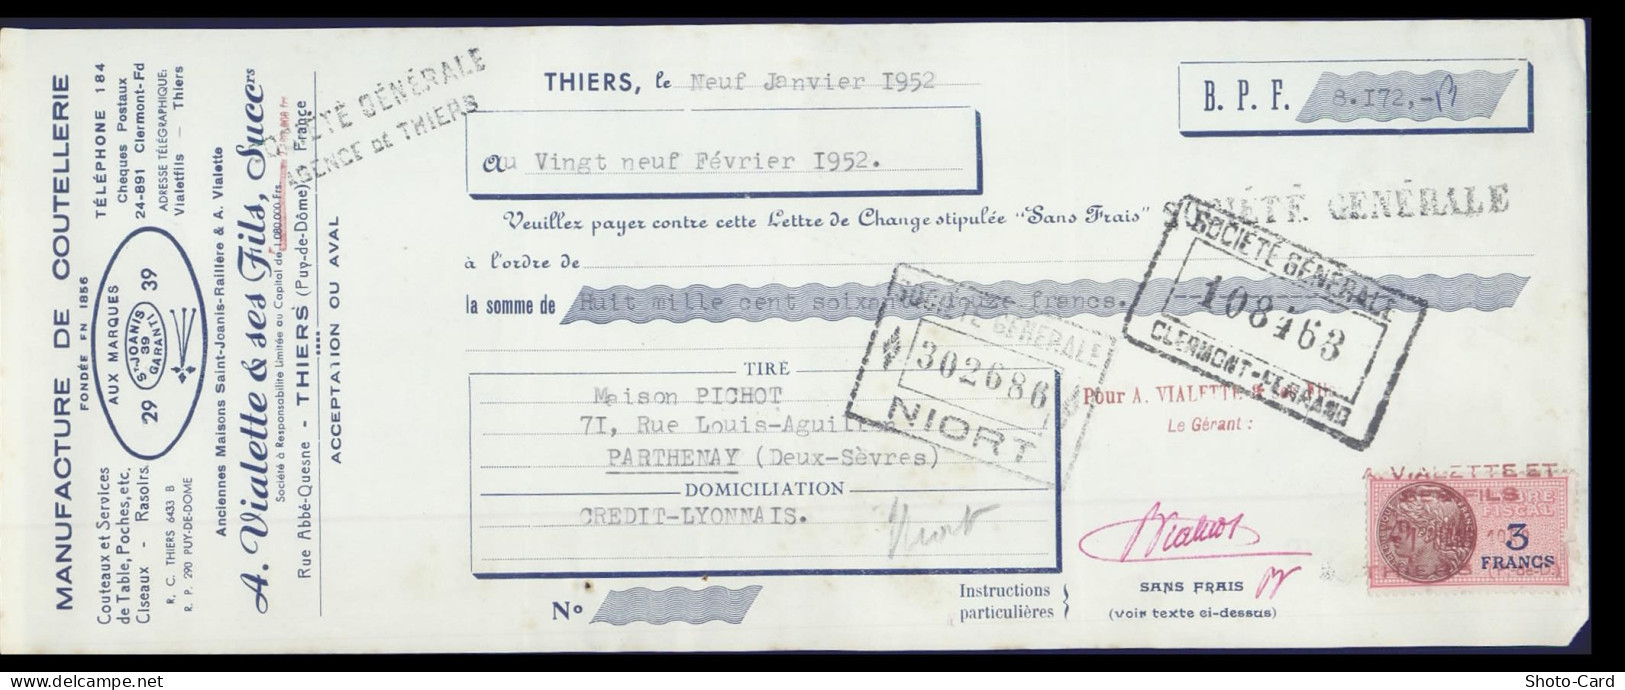 MANUFACTURE DE COUTELLERIE
FONDÉE EN 1856
Couteaux et Services
de Table, Poches, etc.
Ciseaux - Rasoirs.
R. C. THIERS 6433 B
R. P. 290 PUY-DE-DOME
AUX MARQUES
29
ST-JOANIS
39
GARANTI
39
TÉLÉPHONE 184
Cheques Postaux
24-891 Clermont-Fd
ADRESSE TÉLÉGRAPHIQUE:
Vialetfils - Thiers
Anciennes Maisons Saint-Joanis-Raillère & A. Vialette
A. Vialette & ses Fils, Succrs
Société à Responsabilité Limitée au Capital de 1.080.000 Frs
Rue Abbé-Quesne - THIERS (Puy-de-Dôme) France
ACCEPTATION OU AVAL
SOCIÉTÉ GÉNÉRALE
AGENCE DE THIERS
THIERS, le Neuf Janvier I952
B. P. F. 8.I72,-
au Vingt neuf Février I952.
Veuillez payer contre cette Lettre de Change stipulée "Sans Frais"
SOCIÉTÉ GÉNÉRALE
à l'ordre de
la somme de Huit mille cent soixante douze francs.
SOCIÉTÉ GÉNÉRALE
108463
CLERMONT-FERRAND
SOCIÉTÉ GÉNÉRALE
302686
NIORT
TIRÉ
Maison PICHOT
7I, Rue Louis-Aguillon
PARTHENAY (Deux-Sèvres)
DOMICILIATION
CREDIT-LYONNAIS.
Niort
Pour A. VIALETTE & ses Fils
Le Gérant :
Vialette
SANS FRAIS
(voir texte ci-dessus)
No
Instructions
particulières
A. VIALETTE ET
SES FILS
TIMBRE
FISCAL
3
FRANCS
Shoto-Card